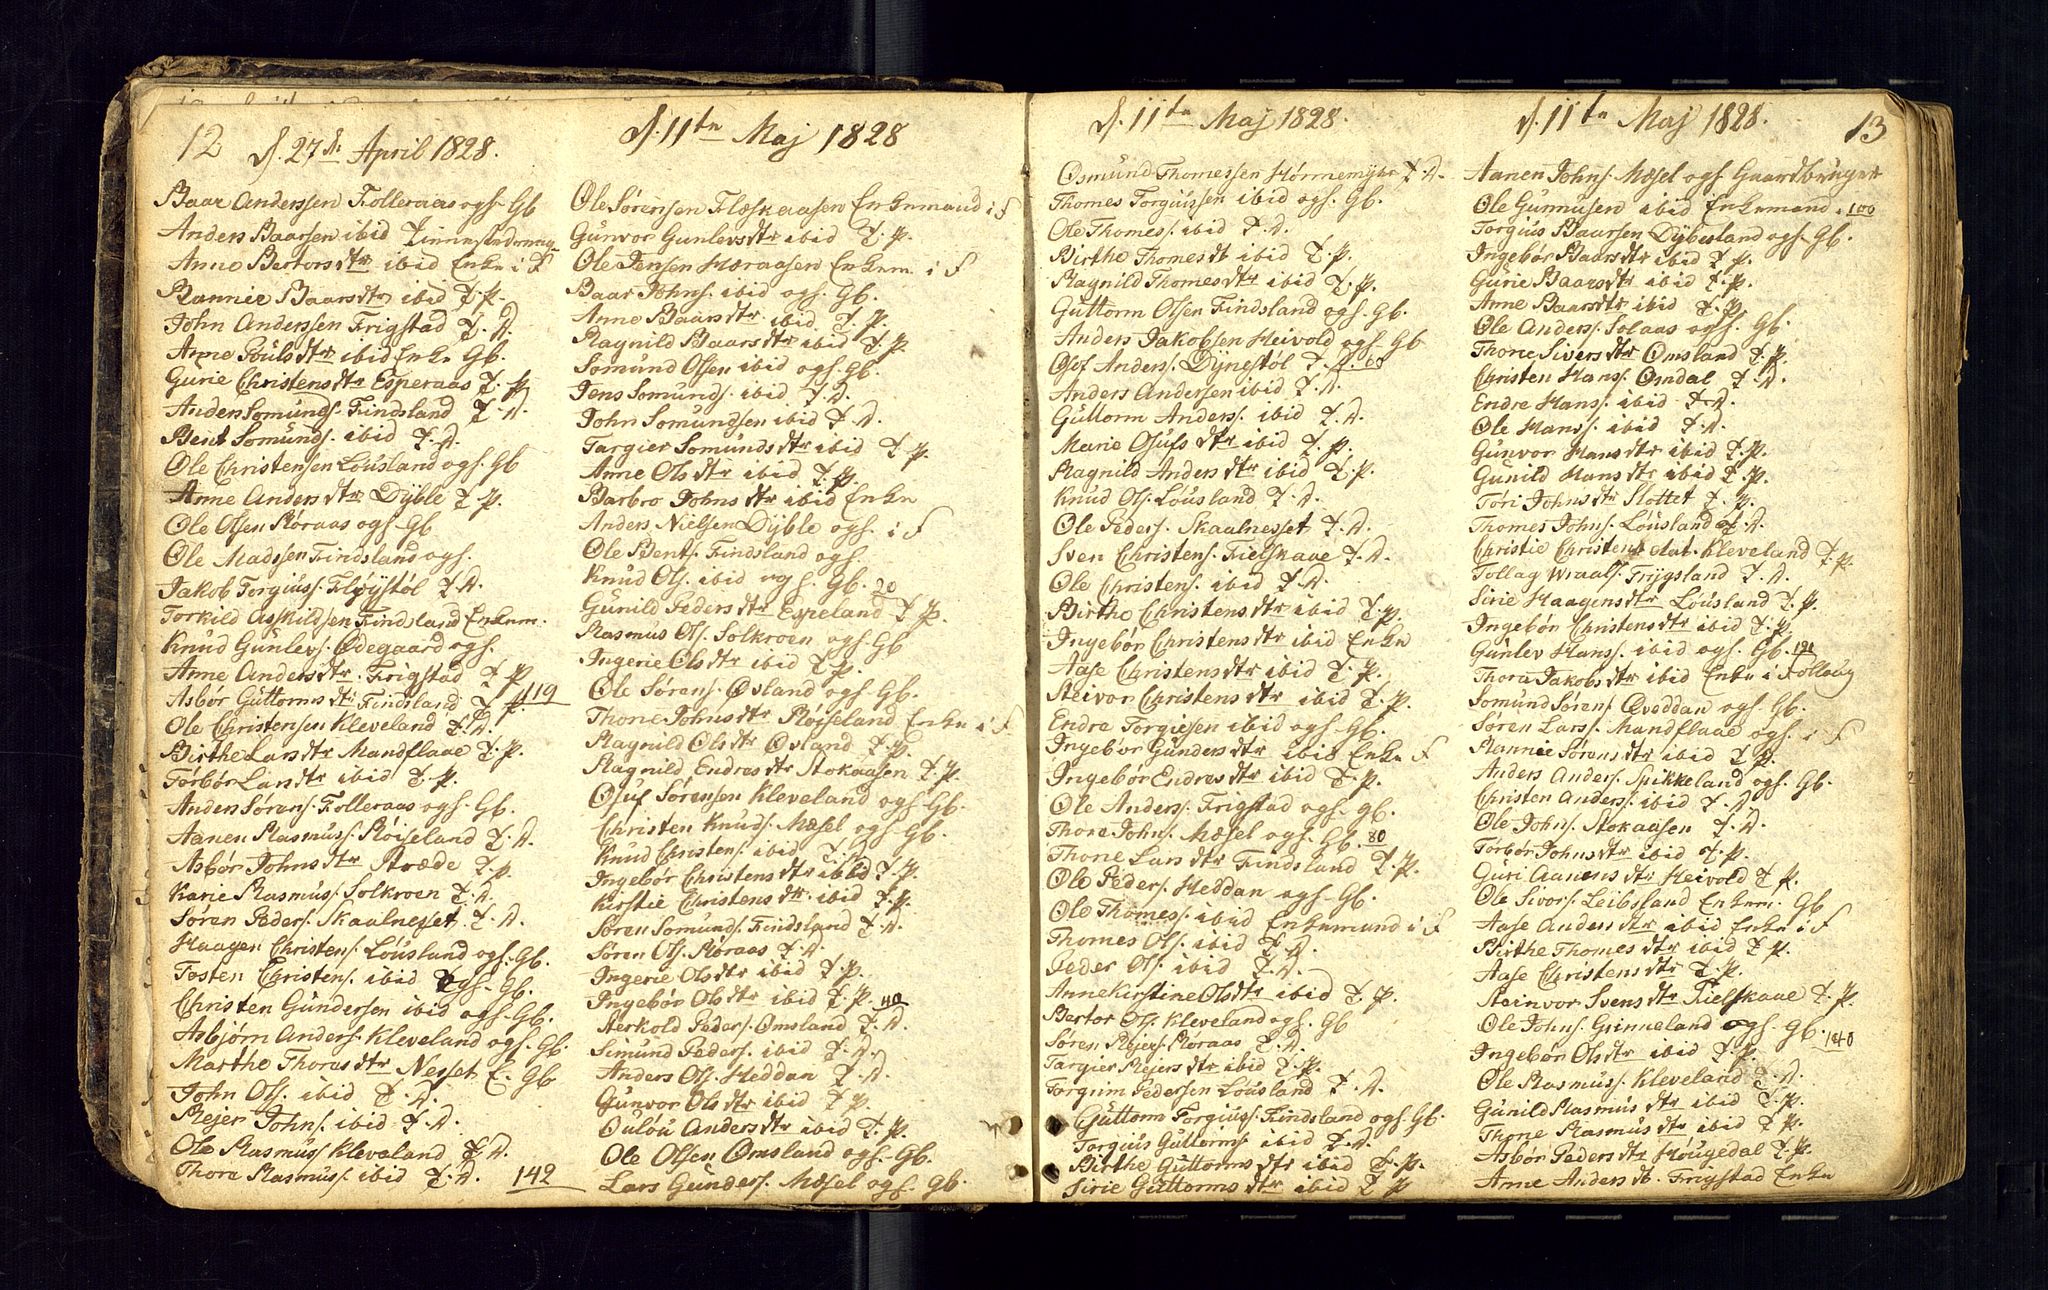 12
d. 27de April 1828.
Baar Anderssen Folleraas ogf. Gb
Anders Baarssen ibid
Anne Bertorsdtr ibid Enke i F
Rannie Baarsdtr ibid T. P.
John Anderssen Frigstad T. D.
Anne Poulsdtr ibid Enke Gb.
Gurie Christensdtr Esperaas T. P
Anders Somunds. Findsland T. D.
Bent Somunds. ibid T. D.
Ole Christensen Lousland ogf. Gb
Anne Andersdtr Dÿble T. P.
Ole Olsen Røraas ogf. Gb
Ole Madssen Findsland ogf.
Jakob Torgiuss. Fløÿstøl T. D.
Torkild Askildsen Findsland Enkem.
Knud Gunlevs. Ødegaard ogf.
Anne Andersdtr. Frigstad T. P
Asbør Guttormsdtr Findsland T. P. 119
Ole Christensen Kleveland T. D.
Birthe Larsdtr Mandflaae T. P.
Torbør Larsdtr ibid T. P.
Anders Sørens. Folleraas ogf. Gb.
Aanen Rasmuss. Røiseland T. D.
Asbør Johnsdtr Stræde T. P
Karie Rasmuss. Solkroen T. D.
Søren Peders. Skaalnesset T. D.
Haagen Christens. Lousland ogf. Gb.
Tosten Christens. ibid ogf. Gb.
Christen Gundersen ibid ogf. Gb.
Asbjørn Anders. Kleveland ogf. Gb.
Marthe Thorasdtr Nesset E. Gb
John Ols. ibid T. D.
Rejer Johns. ibid T. D.
Ole Rasmuss Kleveland T. D.
Thore Rasmuss. ibid T. D. 142
d. 11te Maj 1828
Ole Sørensen Flæskaasen Enkemand i F
Gunvor Gunlevsdtr ibid T. P.
Ole Jensen Hæraasen Enkem i F
Baar Johns. ibid ogf. Gb.
Anne Baarsdtr ibid T. P.
Ragnild Baarsdtr ibid T. P.
Somund Olsen ibid ogf. Gb.
Jens Somunds. ibid T. D.
John Somundsen ibid T. D.
Targier Somundsdtr ibid T. P.
Anne Olsdtr ibid T. P.
Barbro Johnsdtr ibid Enke
Anders Nielsen Dÿble ogf. i F
Ole Bents. Findsland ogf
Knud Ols. ibid ogf. Gb. 20
Gunild Pedersdtr Espeland T. P.
Rasmus Ols. Solkroen ogf. Gb
Ingerie Olsdtr ibid T. P.
Ole Sørens. Øvland ogf. Gb.
Thone Johnsdtr Røiseland Enke i F
Ragnild Olsdtr Øvland T. P.
Ragnild Endresdtr Stokaasen T. P.
Osuf Sørensen Kleveland ogf. Gb.
Christen Knuds. Mæsel ogf. Gb.
Knud Christens. ibid T. D.
Ingebør Christensdtr ibid T. P.
Kirstie Christensdtr. ibid T. P.
Søren Somunds. Findsland T. D.
Søren Ols. Røraas T. D.
Ingerie Olsdtr ibid T. P.
Ingebør Olsdtr ibid T. P. 40
Sterkold Peders. Omsland T. D.
Simund Peders. ibid T. D.
Anders Ols. Heddan T. D.
Gunvor Olsdtr ibid T. P.
Oulou Andersdtr ibid T. P.
Ole Olsen Omsland ogf. Gb.
Lars Gunders. Mæsel ogf. Gb.
d. 11te Maj 1828.
Osmund Thomessen Hørnemÿhr T. D.
Thomes Torguissen ibid ogf. Gb.
Ole Thomes. ibid T. D.
Birthe Thomesdt ibid T. P.
Ragnild Thomesdtr ibid T. P.
Guttorm Olsen Findsland ogf. Gb.
Anders Jakobsen Heivold ogf. Gb
Osuf Anders. Dÿnestøl T. D. 60
Anders Andersen ibid T. D.
Guttorm Anders. ibid T. D.
Marie Osufsdtr ibid T. P.
Ragnild Andersdtr ibid T. P.
Knud Ols. Lousland T. D.
Ole Peders. Skaalnesset T. D.
Sven Christens. Fielskaae T. D.
Ole Christens. ibid T. D.
Birthe Christensdtr ibid T. P.
Ingebør Christensdtr ibid Enke
Aase Christensdtr ibid T. P.
Steivor Christensdtr ibid T. P.
Endre Torgiesen ibid ogf. Gb.
Ingebor Gundersdtr ibid Enke F
Ingebør Endresdtr ibid T. P.
Ole Anders. Frigstad ogf. Gb.
Thore Johns. Mæsel ogf. Gb. 80
Thone Larsdtr Findsland T. P.
Ole Peders. Heddan ogf. Gb.
Ole Thomes. ibid Enkemand i F
Thomes Ols. ibid T. D.
Peder Ols. ibid T. D.
Anne Kirstine Olsdtr ibid T. P.
Bertor Ols. Kleveland ogf. Gb
Søren Rejers. Røraas T. D.
Targier Rejersdtr ibid T. P.
Torgrim Pedersen Lousland T. D.
Guttorm Torgiuss. Findsland ogf. Gb.
Torguis Guttorms. ibid T. D.
Birthe Guttormsdtr ibid T. P.
Sirie Guttormsdtr ibid T. P
d. 11te Maj 1828.
13
Aanen Johns. Mæsel ogf Gaardbruger
Ole Gunnusen ibid Enkemand. 100
Torguis Baarsen Dÿbesland ogf. Gb.
Ingebør Baarsdtr ibid T. P.
Gurie Baarsdtr ibid T. P.
Anne Baarsdtr ibid T. P
Ole Anders. Solaas ogf. Gb.
Thone Siversdtr Omsland T. P.
Christen Hans. Omdal T. D.
Endre Hans. ibid T. D.
Ole Hans. ibid T. D.
Gunvor Hansdtr ibid T. P.
Gunild Hansdtr ibid T. P.
Tøri Johnsdtr Slottet T. P.
Thomes Johns. Lousland T. D.
Christie Christensdat. Kleveland T. P.
Tollag Wraals. Frÿgsland T. D.
Sirie Haagensdtr Lousland T. P.
Ingebør Christensdtr ibid T. P.
Gunlev Hans. ibid ogf. Gb. 120
Thora Jakobsdtr ibid Enke i Follaug
Somund Sørens. Qvoddan ogf. Gb.
Søren Lars. Mandflaae ogf. i F
Rannie Sørensdtr ibid T. P.
Anders Anders. Spikkeland ogf. Gb.
Christen Anders. ibid T. D.
Ole Johns. Stokaasen T. D.
Torbør Johnsdtr ibid T. P.
Guri Aanensdtr Heivold T. P.
Ole Sivers. Leibsland Enkem. Gb
Aase Andersdtr ibid Enke i F
Birthe Thomesdtr ibid T. P.
Aase Christensdtr T. P.
Steinvor Svensdtr Fielskaae T. P.
Ole Johns. Grinneland ogf. Gb. 140
Ingebør Olsdtr ibid T. P.
Ole Rasmuss. Kleveland T. D.
Gunild Rasmusdtr ibid T. P.
Thone Rasmusdtr ibid T. P.
Asbør Pedersdtr Hougedal T. P.
Anne Andersdt. Frigstad Enke